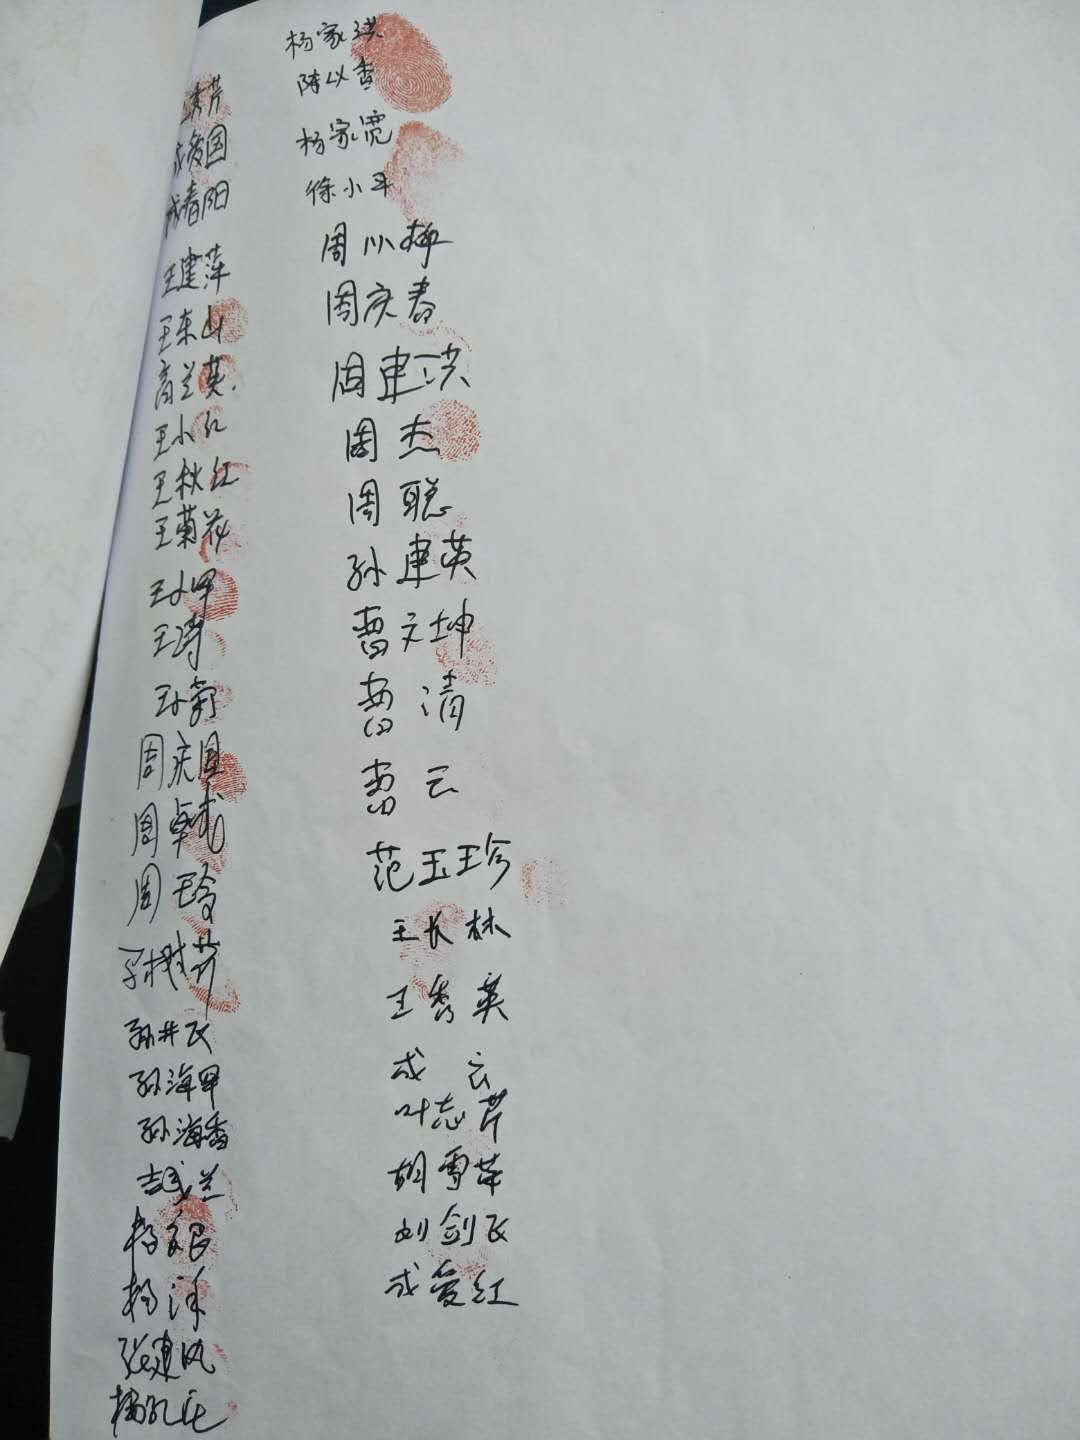 秀芹
成爱国
成春阳
王建萍
王东山
高兰英
王小红
王秋红
王菊花
王小甲
王涛
周庆国
周卓成
周玉玲
孙井飞
孙海甲
孙海香
吉成兰
杨洋
张建凤
杨家洪
陈以香
杨家宽
徐小平
周小梅
周庆春
周建洪
周杰
周聪
孙建英
曹文坤
曹清
曹云
范玉珍
王长林
王秀英
成云
叶志芹
胡雪萍
刘剑飞
成爱红